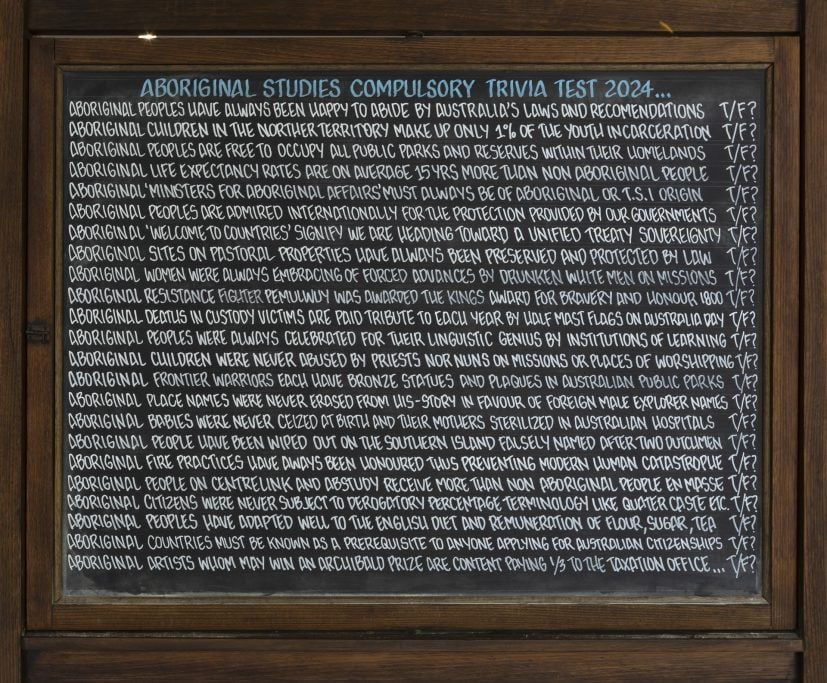 ABORIGINAL STUDIES COMPULSORY TRIVIA TEST 2024...
ABORIGINAL PEOPLES HAVE ALWAYS BEEN HAPPY TO ABIDE BY AUSTRALIA'S LAWS AND RECOMENDATIONS T/F?
ABORIGINAL CHILDREN IN THE NORTHER TERRITORY MAKE UP ONLY 1% OF THE YOUTH INCARCERATION T/F?
ABORIGINAL PEOPLES ARE FREE TO OCCUPY ALL PUBLIC PARKS AND RESERVES WITHIN THEIR HOMELANDS T/F?
ABORIGINAL LIFE EXPECTANCY RATES ARE ON AVERAGE 15YRS MORE THAN NON ABORIGINAL PEOPLE T/F?
ABORIGINAL 'MINISTERS FOR ABORIGINAL AFFAIRS' MUST ALWAYS BE OF ABORIGINAL OR T.S.I ORIGIN T/F?
ABORIGINAL PEOPLES ARE ADMIRED INTERNATIONALLY FOR THE PROTECTION PROVIDED BY OUR GOVERNMENTS T/F?
ABORIGINAL 'WELCOME TO COUNTRIES' SIGNIFY WE ARE HEADING TOWARD A UNIFIED TREATY SOVEREIGNTY T/F?
ABORIGINAL SITES ON PASTORAL PROPERTIES HAVE ALWAYS BEEN PRESERVED AND PROTECTED BY LAW T/F?
ABORIGINAL WOMEN WERE ALWAYS EMBRACING OF FORCED ADVANCES BY DRUNKEN WHITE MEN ON MISSIONS T/F?
ABORIGINAL RESISTANCE FIGHTER PEMULWUY WAS AWARDED THE KINGS AWARD FOR BRAVERY AND HONOUR 1800 T/F?
ABORIGINAL DEATHS IN CUSTODY VICTIMS ARE PAID TRIBUTE TO EACH YEAR BY HALF MAST FLAGS ON AUSTRALIA DAY T/F?
ABORIGINAL PEOPLES WERE ALWAYS CELEBRATED FOR THEIR LINGUISTIC GENIUS BY INSTITUTIONS OF LEARNING T/F?
ABORIGINAL CHILDREN WERE NEVER ABUSED BY PRIESTS NOR NUNS ON MISSIONS OR PLACES OF WORSHIPPING T/F?
ABORIGINAL FRONTIER WARRIORS EACH HAVE BRONZE STATUES AND PLAQUES IN AUSTRALIAN PUBLIC PARKS T/F?
ABORIGINAL PLACE NAMES WERE NEVER ERASED FROM HIS-STORY IN FAVOUR OF FOREIGN MALE EXPLORER NAMES T/F?
ABORIGINAL BABIES WERE NEVER CEIZED AT BIRTH AND THEIR MOTHERS STERILIZED IN AUSTRALIAN HOSPITALS T/F?
ABORIGINAL PEOPLE HAVE BEEN WIPED OUT ON THE SOUTHERN ISLAND FALSELY NAMED AFTER TWO DUTCHMEN T/F?
ABORIGINAL FIRE PRACTICES HAVE AWAYS BEEN HONOURED THUS PREVENTING MODERN HUMAN CATASTROPHE T/F?
ABORIGINAL PEOPLE ON CENTRELINK AND ABSTUDY RECEIVE MORE THAN NON ABORIGINAL PEOPLE EN MASSE T/F?
ABORIGINAL CITIZENS WERE NEVER SUBJECT TO DEROGATORY PERCENTAGE TERMINOLOGY LIKE QUATER CASTE ETC. T/F?
ABORIGINAL PEOPLES HAVE ADAPTED WELL TO THE ENGLISH DIET AND REMUNERATION OF FLOUR, SUGAR, TEA T/F?
ABORIGINAL COUNTRIES MUST BE KNOWN AS A PREREQUISITE TO ANYONE APPLYING FOR AUSTRALIAN CITIZENSHIPS T/F?
ABORIGINAL ARTISTS WHOM MAY WIN AN ARCHIBALD PRIZE ARE CONTENT PAYING 1/3 TO THE TAXATION OFFICE... T/F?